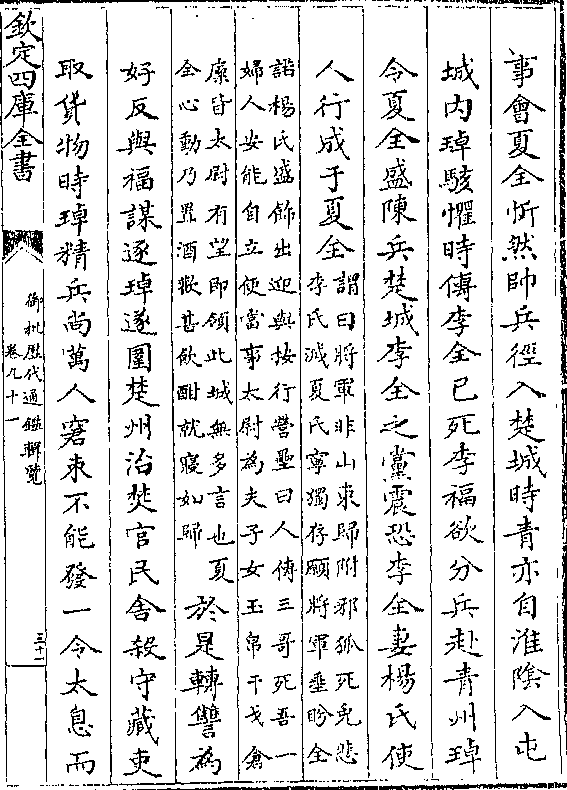 事會夏全忻然帥兵徑入楚城時青亦自淮陰入屯
城内琸駭懼時傳李全已死李福欲分兵赴青州琸
令夏全盛陳兵楚城李全之黨震恐李全妻楊氏使
人行成于夏全
謂曰將軍非山東歸附邪狐死兔悲
李氏滅夏氏寧獨存願將軍垂盼全
諾楊氏盛飾出迎與按行營壘曰人傳三哥死吾一
婦人安能自立便當事太尉為夫子女玉帛干戈倉
廪皆太尉有望即領此城無多言也夏
全心動乃置酒歡甚飲酣就寢如歸
於是轉讐為
好反與福謀逐琸遂圍楚州治焚官民舍殺守藏吏
取貨物時琸精兵尚萬人窘束不能發一令太息而
欽定四庫全書
御批歷代通鑑輯覽
卷九十一
三十一